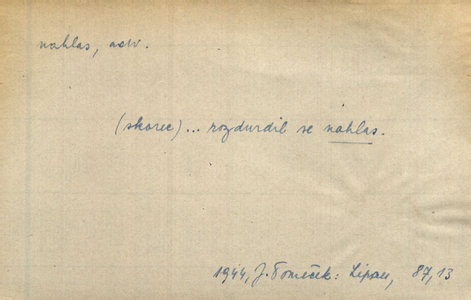 nahlas, adv.
(skorec)... rozdurdil se nahlas.
1944, J. Tomeček: Lipan, 87,13